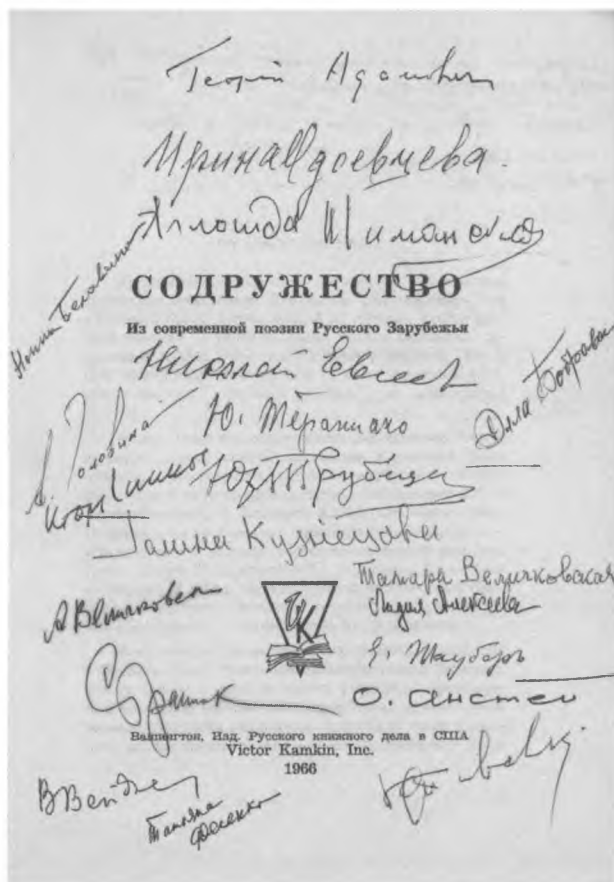 Георгій Адамович
Ирина Одоевцева.
Аглаида Шиманская
Нонна Белавина
СОДРУЖЕСТВО
Из современной поэзии Русского Зарубежья
Николай Евсеев
Ю. Терапиано
Элла Боброва
А. Головина
Игорь Чиннов
Юр Трубецк
Галина Кузнецова
Тамара Величковская
А Величковск
Лидия Алексеева
Е. Таубер
О. Анстей
Вашингтон, Изд. Русского книжного дела в США
Victor Kamkin, Inc.
1966
ВВейдле
Татьяна
Фесенко